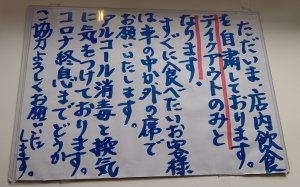 ただいま店内飲食
を自粛しております。
テイクアウトのみと
なります。
すぐに食べたいお客様
は車の中か外の席で
お願いいたします。
アルコール消毒と換気
に気をつけております。
コロナ終息までどうか
ご協力よろしくお願いいたし
します。